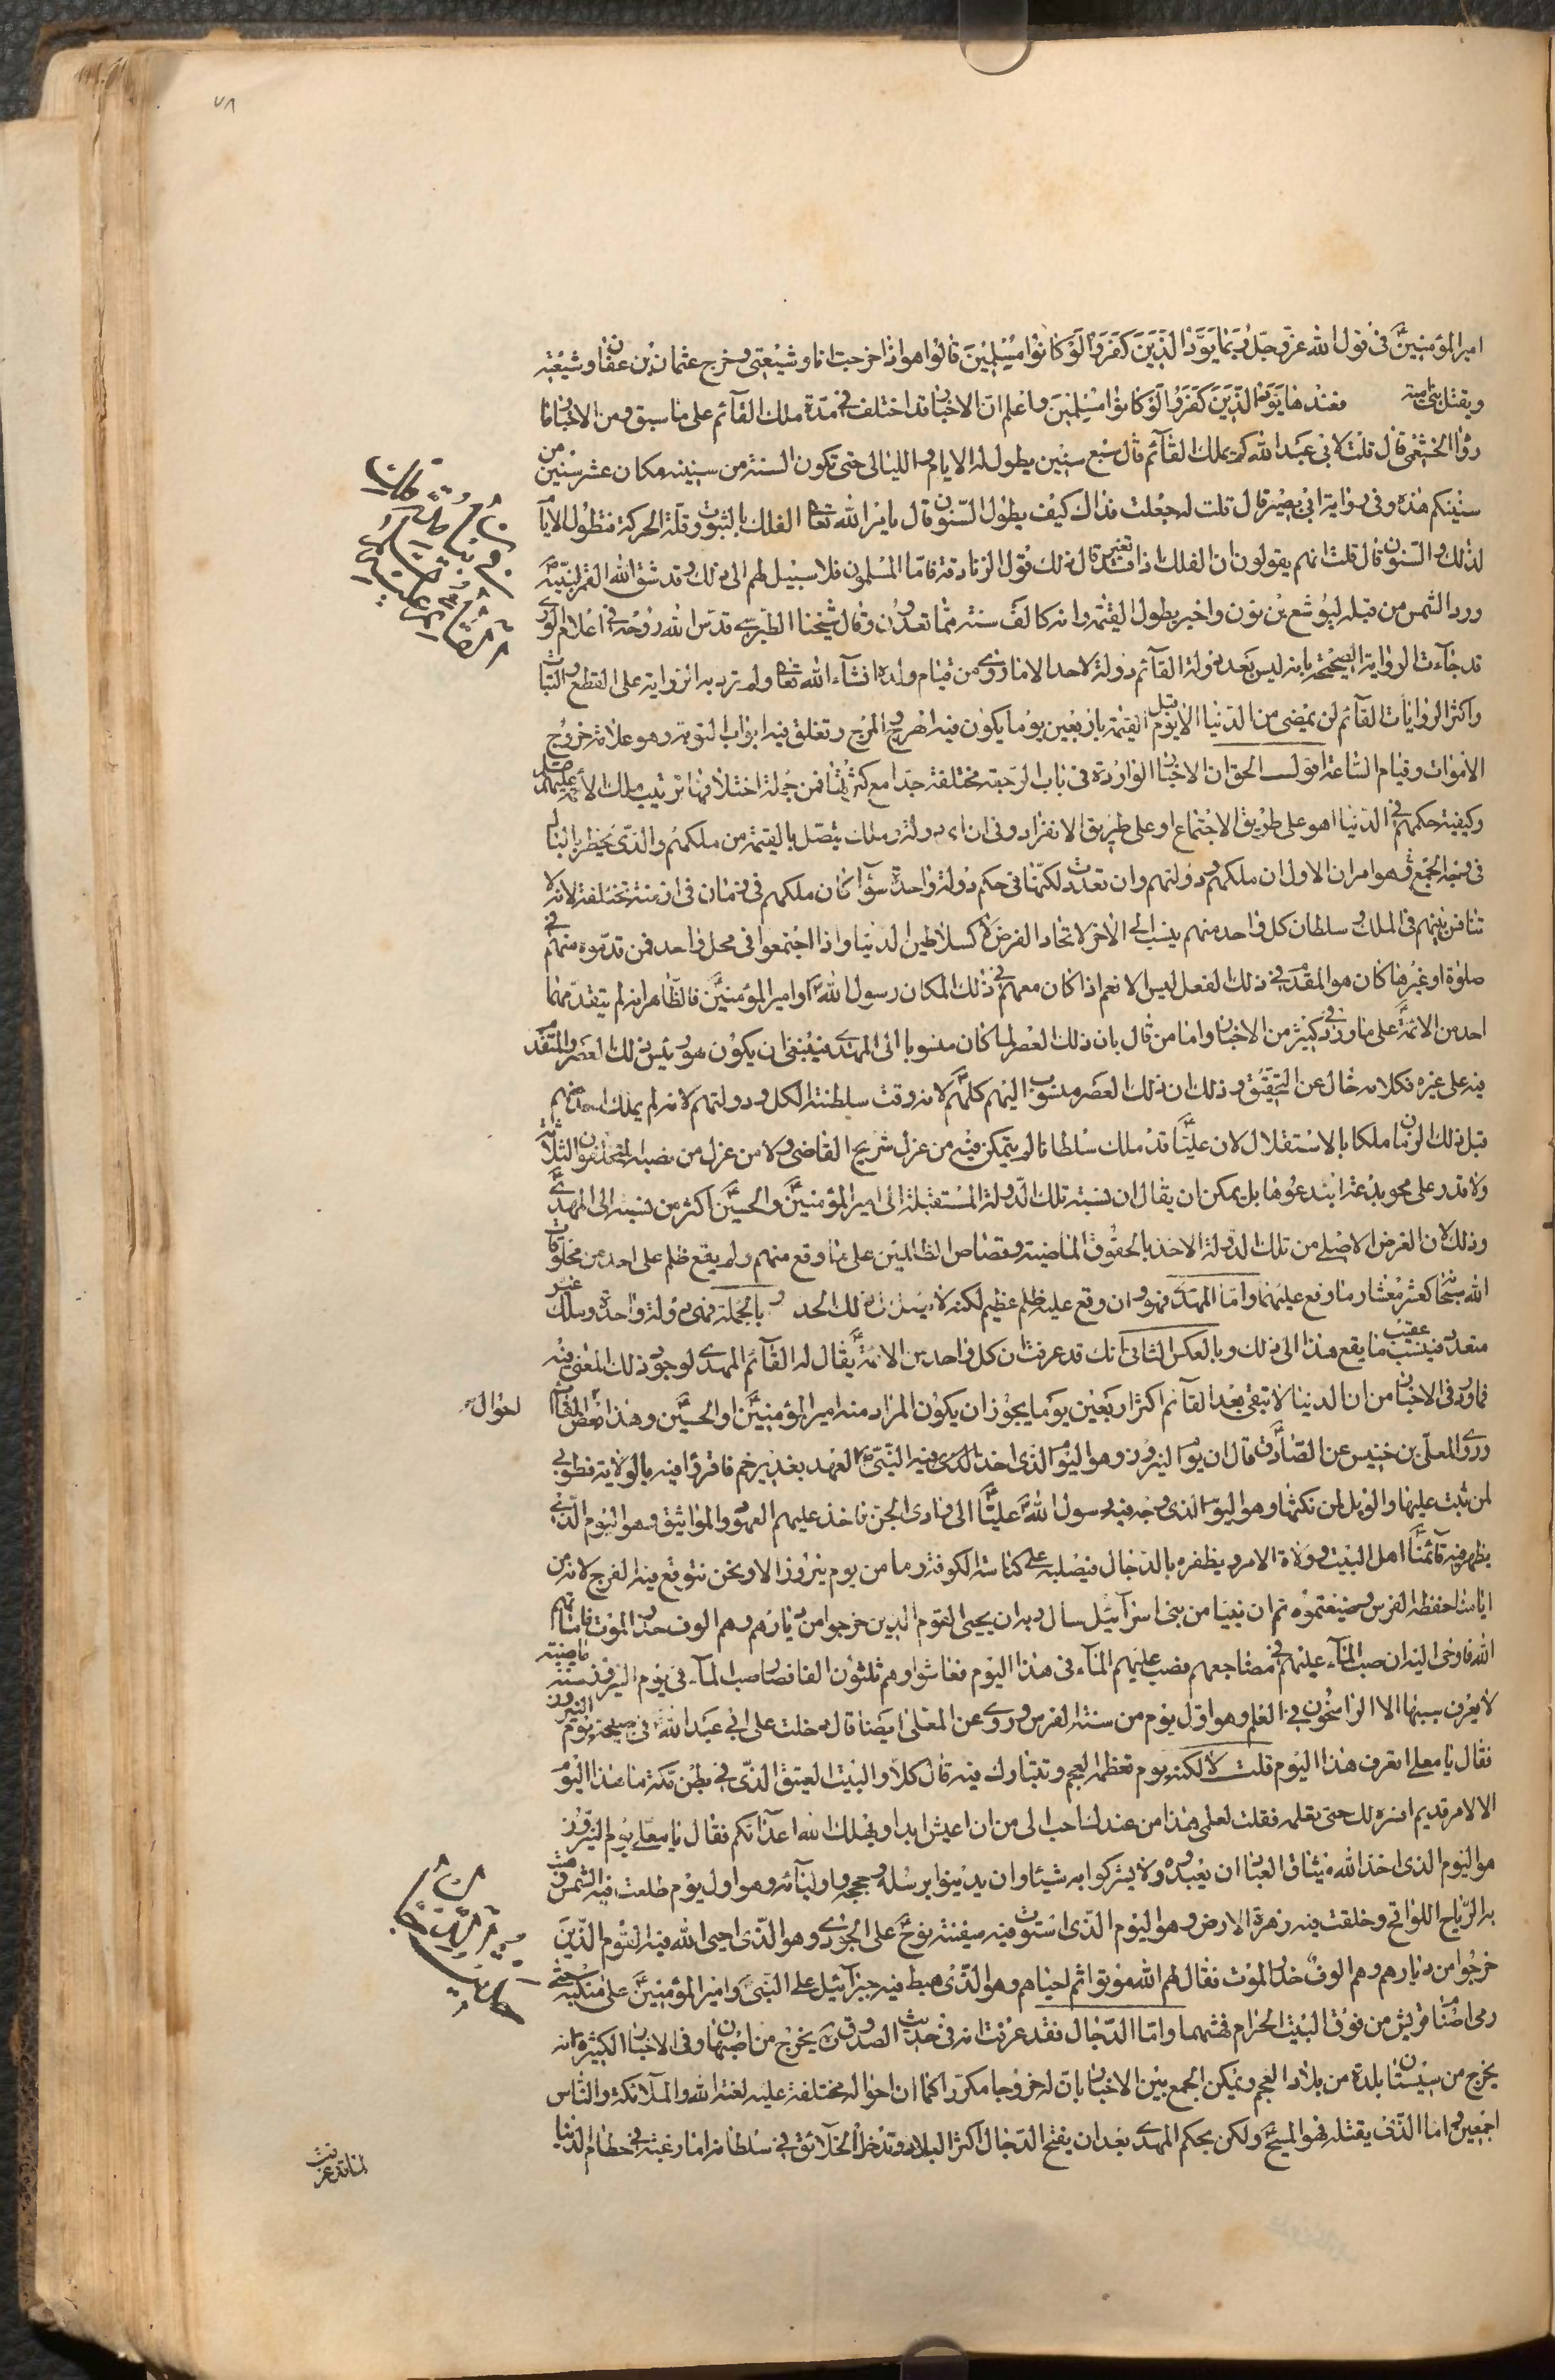 ٧٨
امير المؤمنين ع في قول الله عز وجل ربما يود الذين كفروا لو كانوا مسلمين قال هو اذا خرجت انا وشيعتي وخرج عثمان بن عفان وشيعته
ويقتل بني امية فعندها يود الذين كفروا لو كانوا مسلمين واعلم ان الاخبار قد اختلف في مدة ملك القائم على ما سبق ومن الاخبار ما
رواه الخثعمي قال قلت لابي عبد الله كم يملك القآئم قال سبع سنين يطول له الايام والليالي حتى تكون السنة من سنينه مكان عشر سنين من
سنينكم هذه وفي رواية ابي بصير قال قلت له جعلت فداك كيف يطول السنون قال يامر الله تعالى الفلك بالثبوت وقلة الحركة فتطول الايام
لذلك والسنون قال قلت انهم يقولون ان الفلك اذا تغير فسد قال ذلك قول الزنادقة فاما المسلمون فلا سبيل لهم الى ذلك وقد شق الله القمر لنبيه
ورد الشمس من قبله ليوشع بن نون واخبر بطول القيمة وانه كالف سنة مما تعدون وقال شيخنا الطبرسي قدس الله روحه في اعلام الورى
قد جآءت الرواية الصحيحة بانه ليس بعد دولة القآئم دولة لاحد الا ما روى من قيام ولده انشآء الله تعالى ولم ترد به الرواية على القطع والثبات
واكثر الروايات القآئم لن يمضي من الدنيا الا قبل يوم القيمة باربعين يوما يكون فيه الهرج والمرج وتغلق فيه ابواب التوبة وهو علامة خروج
الاموات وقيام الساعة اقول الحق ان الاخبار الواردة في باب الرجعة مختلفة جدا مع كثرتها فمن جملة اختلافها ترتيب ملك الائمة عليهم السلم
وكيفية حكمهم في الدنيا اهو على طريق الاجتماع او على طريق الانفراد وفي ان اي دولة وملك يتصل بالقيمة من ملكهم والذي يخطر بالبال
في وجه الجمع هو امران الاول ان ملكهم ودولتهم وان تعددت لكنها في حكم دولة واحدة سوآء كان ملكهم في زمان او في ازمنة مختلفة لانه لا
تنافر بينهم في الملك و سلطان كل واحد منهم ينسب الى الاخر لاتحاد الغرض لا كسلاطين الدنيا واذا اجتمعوا في محل واحد فمن قدموه منهم في
صلوة او غيرها كان هو المقدم في ذلك الفعل ليس الا نعم اذا كان معهم في ذلك المكان رسول الله ص او امير المؤمنين ع فالظاهر انه لم يتقدم عليهما
احد من الائمة ع على ما ورد في كثير من الاخبار واما من قال بان ذلك العصر لما كان منسوبا الى المهدي فينبغي ان يكون هو رئيس ذلك العصر والمتقدم
فيه على غيره فكلامه خال عن التحقيق وذلك ان ذلك العصر منسوب اليهم كلهم لانه وقت سلطنة الكل ودولتهم لانه لم يملك احد منهم
قبل ذلك الزمان ملكا بالاستقلال لان عليا ع قد ملك سلطانا لم يتمكن فيه من عزل شريح القاضي ولا من عزل من نصبه المتخلفون الثلاثة
ولا قدر على محو بدعة ابتدعوها بل يمكن ان يقال ان نسبة تلك الدولة المستقبلة الى امير المؤمنين ع والحسين ع اكثر من نسبته الى المهدي ع
وذلك لان الغرض الاصلي من تلك الدولة الاخذ بالحقوق الماضية وقصاص الظالمين على ما وقع منهم ولم يقع ظلم على احد من مخلوقات
الله سبحانه كعشر معشار ما وقع عليهما واما المهدي فهو وان وقع عليه ظلم عظيم لكنه لا ذلك الحد وبالجملة فهي دولة واحدة وملك غير
متعدد فينسب عقيب ما يقع هذا الى ذلك وبالعكس الثاني انك قد عرفت ان كل واحد من الائمة ع يقال له القآئم المهدي لوجود ذلك المعنى فيه
فما ورد في الاخبار من ان الدنيا لا تبقى بعد القآئم اكثر اربعين يوما يجوز ان يكون المراد منه امير المؤمنين ع او الحسين ع وهذا بعض المقال
روى المعلى بن خنيس عن الصادق ع قال ان يوم النيروز وهو اليوم الذي اخذ فيه النبي ص العهد بغدير خم فاقروا فيه بالولاية فطوبى
لمن ثبت عليها والويل لمن نكثها وهو اليوم الذي وجه فيه رسول الله ص عليا ع الى وادي الجن فاخذ عليهم العهود والمواثيق وهو اليوم الذي
يظهر فيه قآئمنا اهل البيت وولاة الامر ويظفره بالدجال فيصلبه على كناسة الكوفة وما من يوم نيروز الا ونحن نتوقع فيه الفرج لانه من
ايامنا حفظه الفرس وضيعتموه ثم ان نبيا من بني اسرآئيل سال ربه ان يحيى القوم الذين خرجوا من ديارهم وهم الوف حذر الموت فاماتهم
الله فاوحى اليه ان صب المآء عليهم في مضاجعهم فصب عليهم المآء في هذا اليوم فعاشوا وهم ثلثون الفا فصار صب المآء في يوم النيروز سنة ماضية
لا يعرف سببها الا الراسخون في العلم وهو اول يوم من سنة الفرس وروى عن المعلى ايضا قال دخلت على ابي عبد الله ع في صبيحة يوم النيروز
فقال يا معلى اتعرف هذا اليوم قلت لا لكنه يوم تعظمه العجم وتتبارك فيه قال كلا والبيت العتيق الذي في بطن مكة ما هذا اليوم
الا لامر قديم افسره لك حتى تعلمه فقلت لعلمي هذا من عندك احب الى من ان اعيش ابدا ويهلك الله اعدآئكم فقال يا معلى يوم النيروز
هو اليوم الذي اخذ الله ميثاق العباد ان يعبدوه ولا يشركوا به شيئا وان يدينوا برسله وحججه واوليآئه وهو اول يوم طلعت فيه الشمس وهبت
به الرياح اللواقح وخلقت فيه زهرة الارض وهو اليوم الذي استوت فيه سفينة نوح ع على الجودي وهو الذي احيى الله فيه القوم الذين
خرجوا من ديارهم وهم الوف حذر الموت فقال لهم الله موتوا ثم احياهم وهو الذي هبط فيه جبرآئيل على النبي ص وامير المؤمنين ع على منكبه حتى
رمى اصنام قريش من فوق البيت الحرام فهشمها واما الدجال فقد عرفت انه في حديث الصدوق ره يخرج من اصبهان وفي الاخبار الكثيرة انه
يخرج من سيستان بلدة من بلاد العجم ويمكن الجمع بين الاخبار بان له خروجا مكررا كما ان احواله مختلفة عليه لعنة الله والملآئكة والناس
اجمعين واما الذي يقتله فهو المسيح ع ولكن بحكم المهدي بعد ان يفتح الدجال اكثر البلاد وتدخل الخلآئق في سلطانه اما رغبة في حطام الدنيا
لما قد عرفت